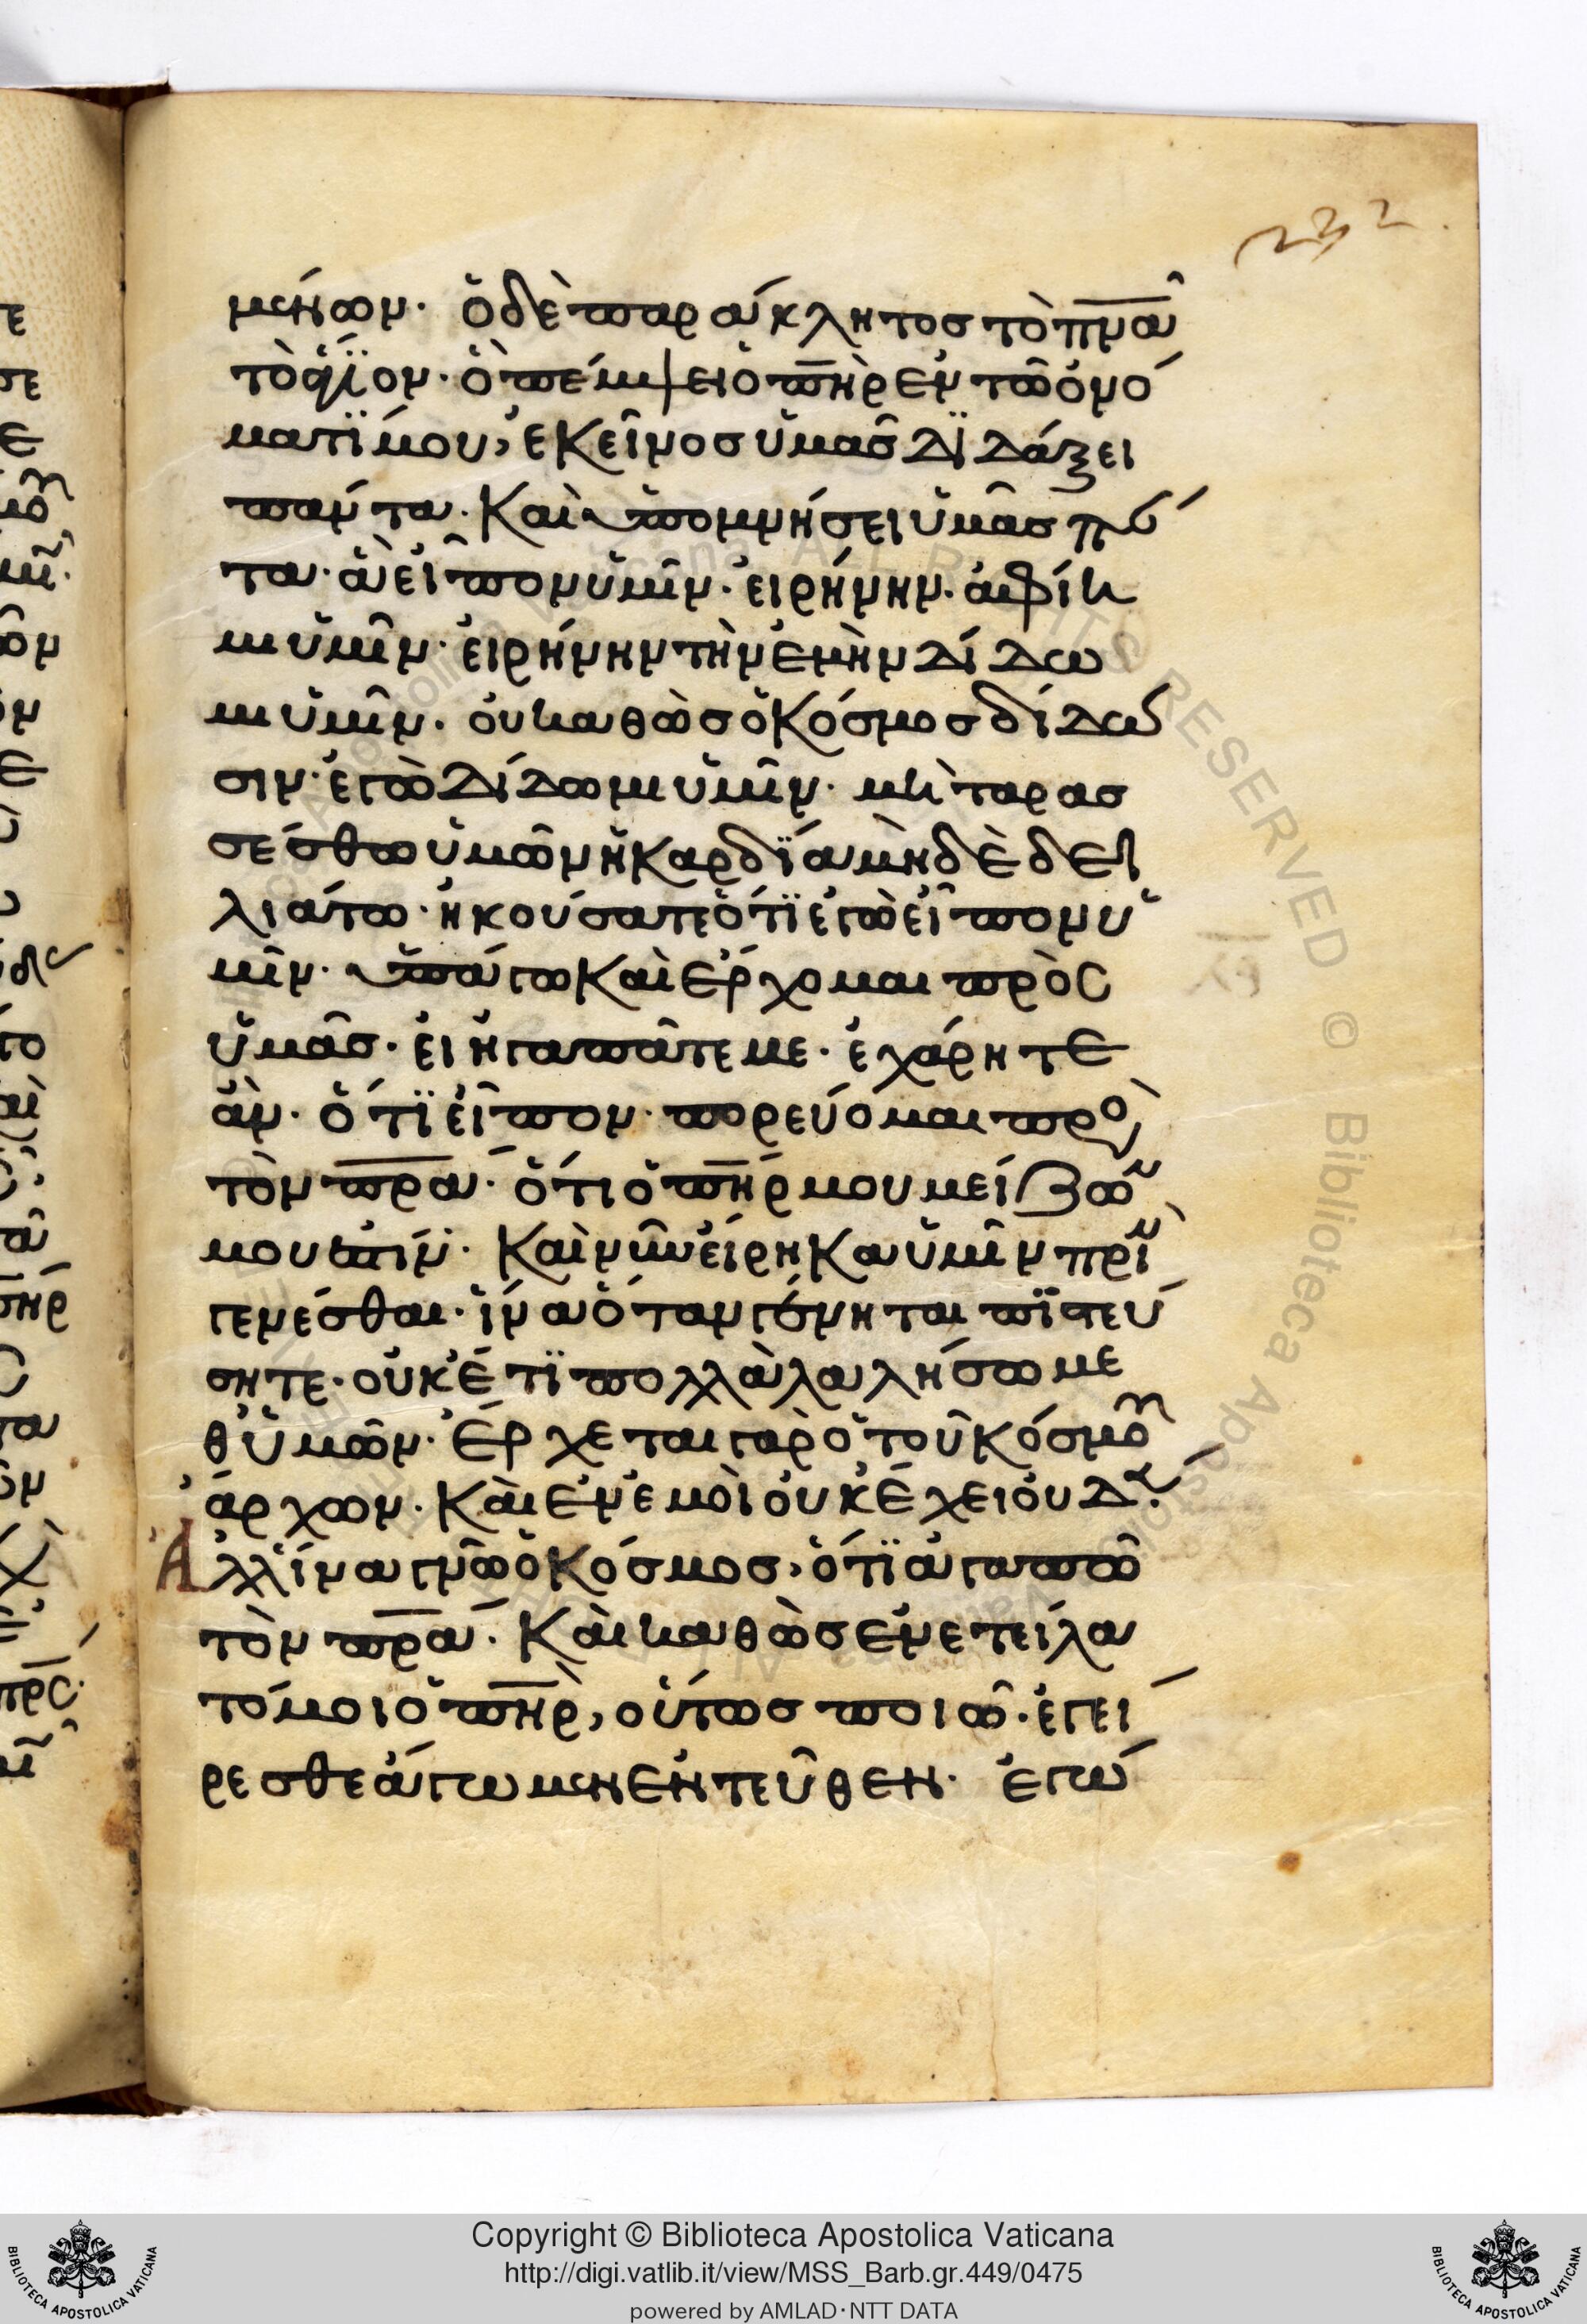 232.
μένων· ὁ δὲ παράκλητος τὸ πνᾶ
τὸ ἅγϊον· ὃ πέμψει ὁ πηρ ἐν τῶ ὀνό
ματί μου, ἐκεῖνος ὑμᾶς διδάξει
πάντα· καὶ ὑπομνήσει ὑμᾶς πά
τα· ἃ εἶπον ὑμῖν· εἰρήνην· ἀφίη
μι ὑμῖν· εἰρήνην τὴν ἐμὴν δίδω
μι ὑμῖν· οὐ καθὼς ὁ κόσμος δίδω
σιν· ἐγὼ δίδωμι ὑμῖν· μὴ ταρασ
σέσθω ὑμῶν ἡ καρδία μὴ δὲ δει
λιάτω· ἠκούσατε ὅτϊ ἐγὼ εἶπον ὑ
μῖν· ὑπάγω καὶ ἔρχομαι πρὸς
ὑμᾶς· εἰ ἠγαπᾶτε με· ἐχάρητε
ἄν· ὅτϊ εἶπον· πορεύομαι πρὸς
τὸν πρα· ὅτι ὁ πήρ μου μείζων
μου ἐστίν· καὶ νῦν εἴρηκα ὑμῖν πρὶν
γενέσθαι· ἵνα ὅταν γένηται πϊστεύ
σητε· οὐκέτϊ πολλὰ λαλήσω με
θ ὑμῶν· ἔρχεται γὰρ ὁ τοῦ κόσμου
ἄρχων· καὶ ἐν ἐμοὶ οὐκ ἔχει οὐδέν·
Ἀλλ ἵνα γνῶ ὁ κόσμος, ὅτϊ ἀγαπῶ
τὸν πρα· καὶ καθὼς ἐνετείλα
τό μοι ὁ πὴρ, οὕτως ποιῶ· ἐγεί
ρεσθε ἄγωμεν ἐντεῦθεν· ἐγώ
Copyright © Biblioteca Apostolica Vaticana
http://digi.vatlib.it/view/MSS_Barb.gr.449/0475
powered by AMLAD·NTT DATA